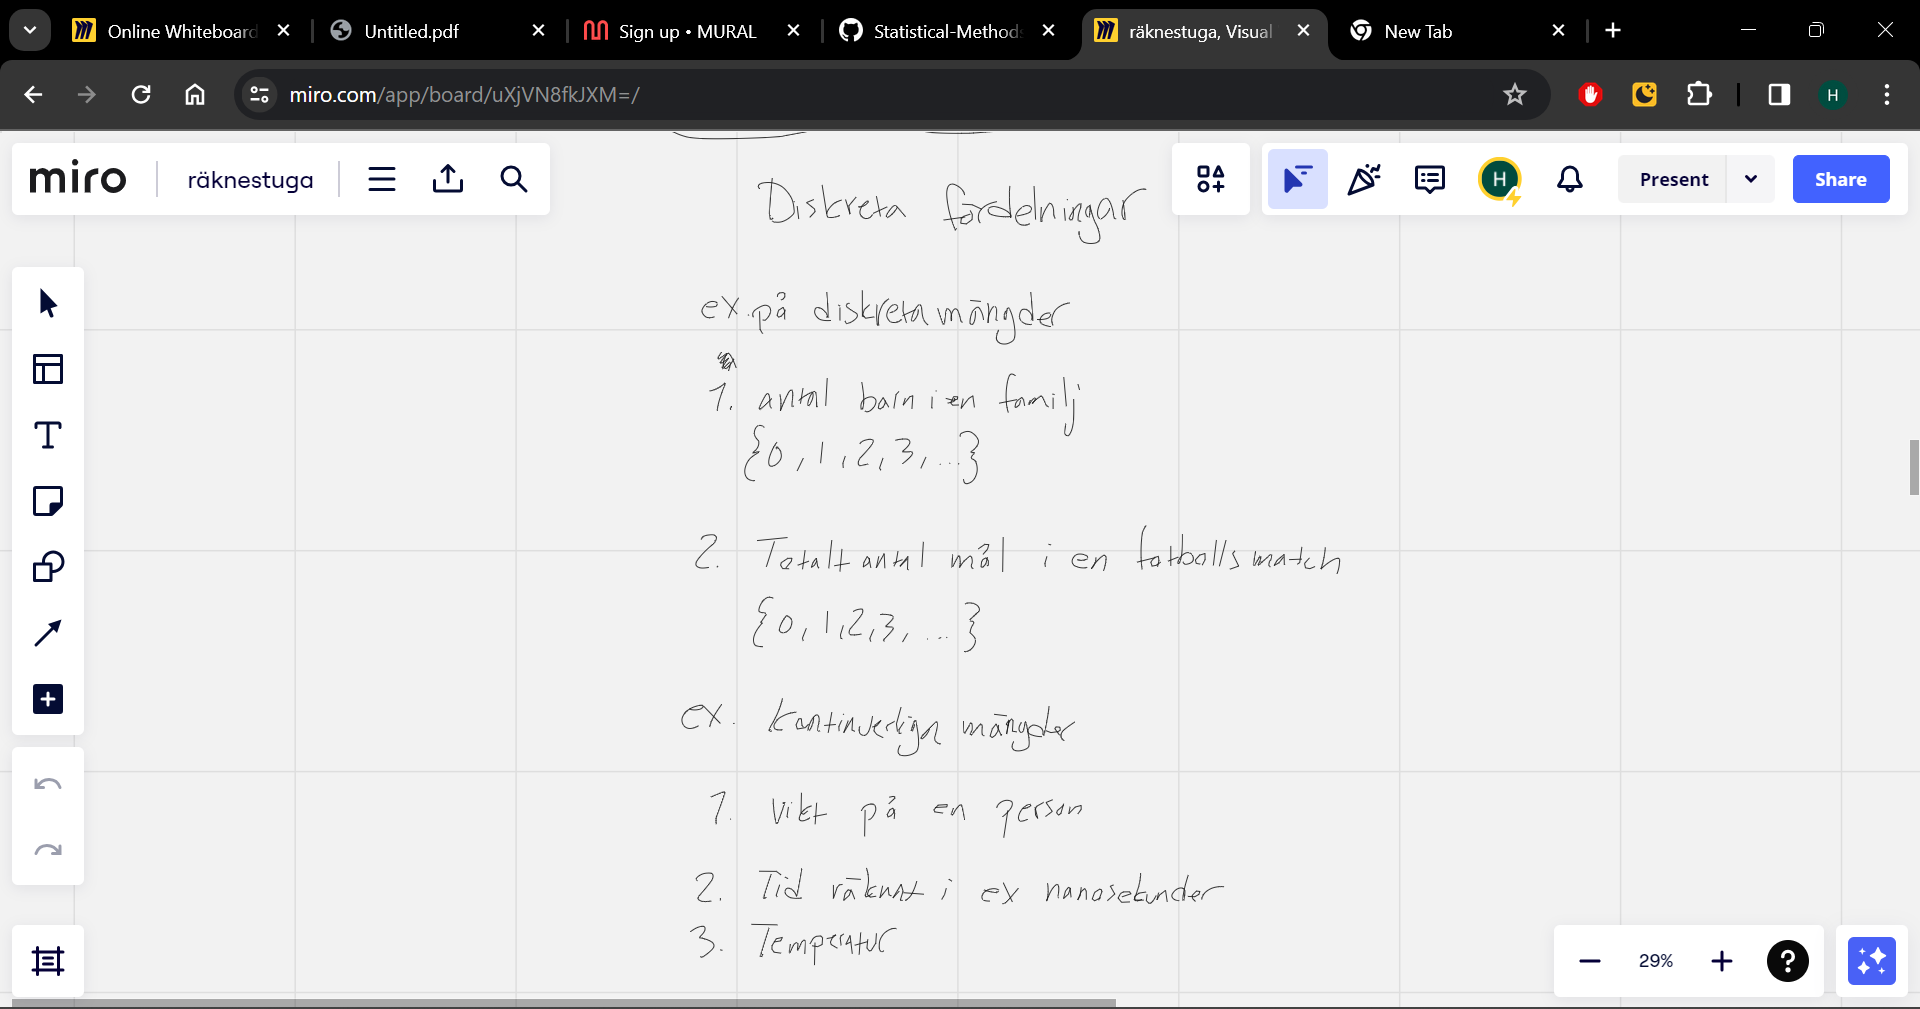 Online Whiteboard
Untitled.pdf
Sign up • MURAL
Statistical-Methods
räknestuga, Visual
New Tab
miro.com/app/board/uXjVN8fkJXM=/
H
miro
räknestuga
H
Present
Share
Diskreta fördelningar
ex. på diskreta mängder
1. antal barn i en familj
{0, 1, 2, 3, ...}
2. Totalt antal mål i en fotbollsmatch
{0, 1, 2, 3, ...}
ex. kontinuerliga mängder
1. Vikt på en person
2. Tid räknat i ex nanosekunder
3. Temperatur
29%
?